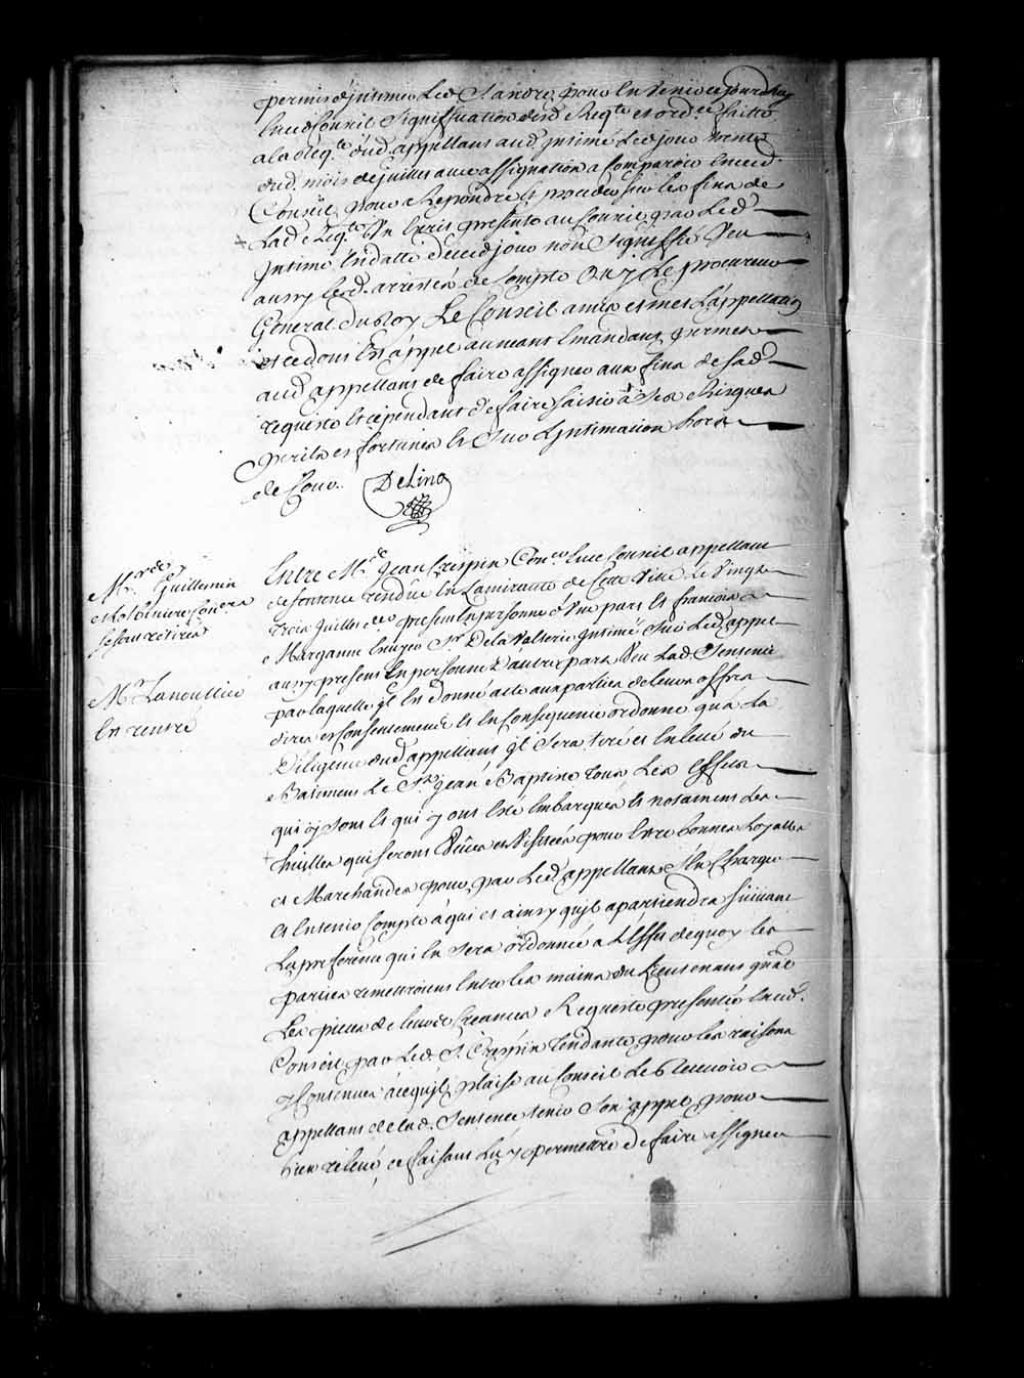 permis d'jntimer Led S. andré pour En Venir ce jourdhuy
Enced Conseil Signiffication desd Reqte et ordce faitte
a la Reqte dud appellant aud jntimé Led jour trente
dud. mois de juillet avec assignation a Comparoir Enced
Conseil pour Repondre Et proceder sur les fins de
Lad. Reqte Un Ecrit presenté au Conseil par Led
Jntimé En datte decedjour non Signiffié Veu
aussy Lesd. arrestés de Compte Ouy Le procureur
General du Roy Le Conseil a mis et met L'appellation
et ce dont Est appel au neant Emandant permet
aud appellant de faire assigner aux fins de sad
requeste Et cependant de faire saisir a Ses Risques
perils et fortunes Et Sur Ljntimation hors
de Cour. DeLino
Mrs Guillemin
et de Coners
se sont retirés
Mr Lanoullier
En rentré
Entre Me jean Crespin Coner Ence Conseil appellant
de sentence rendüe En Lamirauté de Cette Ville Le Vingt
trois Juillet der present En personne d'Une part Et francois
Margane Ecuyer Sr. De la Valterie Jntimé Sur Led appel
aussy present En personne D'autre part Veu Lad. Sentence
par laquelle jl Est donné acte aux parties de Leurs offres
dires et Consentements Et En Consequence ordonné qu'a La
Diligence dud appellant jl Sera tiré et Enlevé du
Batiment Le St jean Baptiste tous Les Effets
qui y sont Et qui y ont Esté Embarqués Et notament Les
huilles qui seront Veües et Visitées pour Estre bonnes Loyalles
et Marchandes pour, par Led appellant S'En Charger
et En tenir Compte a qui et ainsy qu'jl apartiendra suivant
La preference qui En sera ordonnée a L'Effet dequoy Les
parties remettront Entre les mains du Lieutenant gnãl
Les pieces de leurs Creances Requeste presentée Enced.
Conseil par Led. S. Crespin tendante pour les raisons
y Contenües acequ'jl plaise au Conseil Le Recevoir
appellant de lad. Sentence tenir Son appel pour
bien relevé, ce faisant Luy permettre de faire assigner